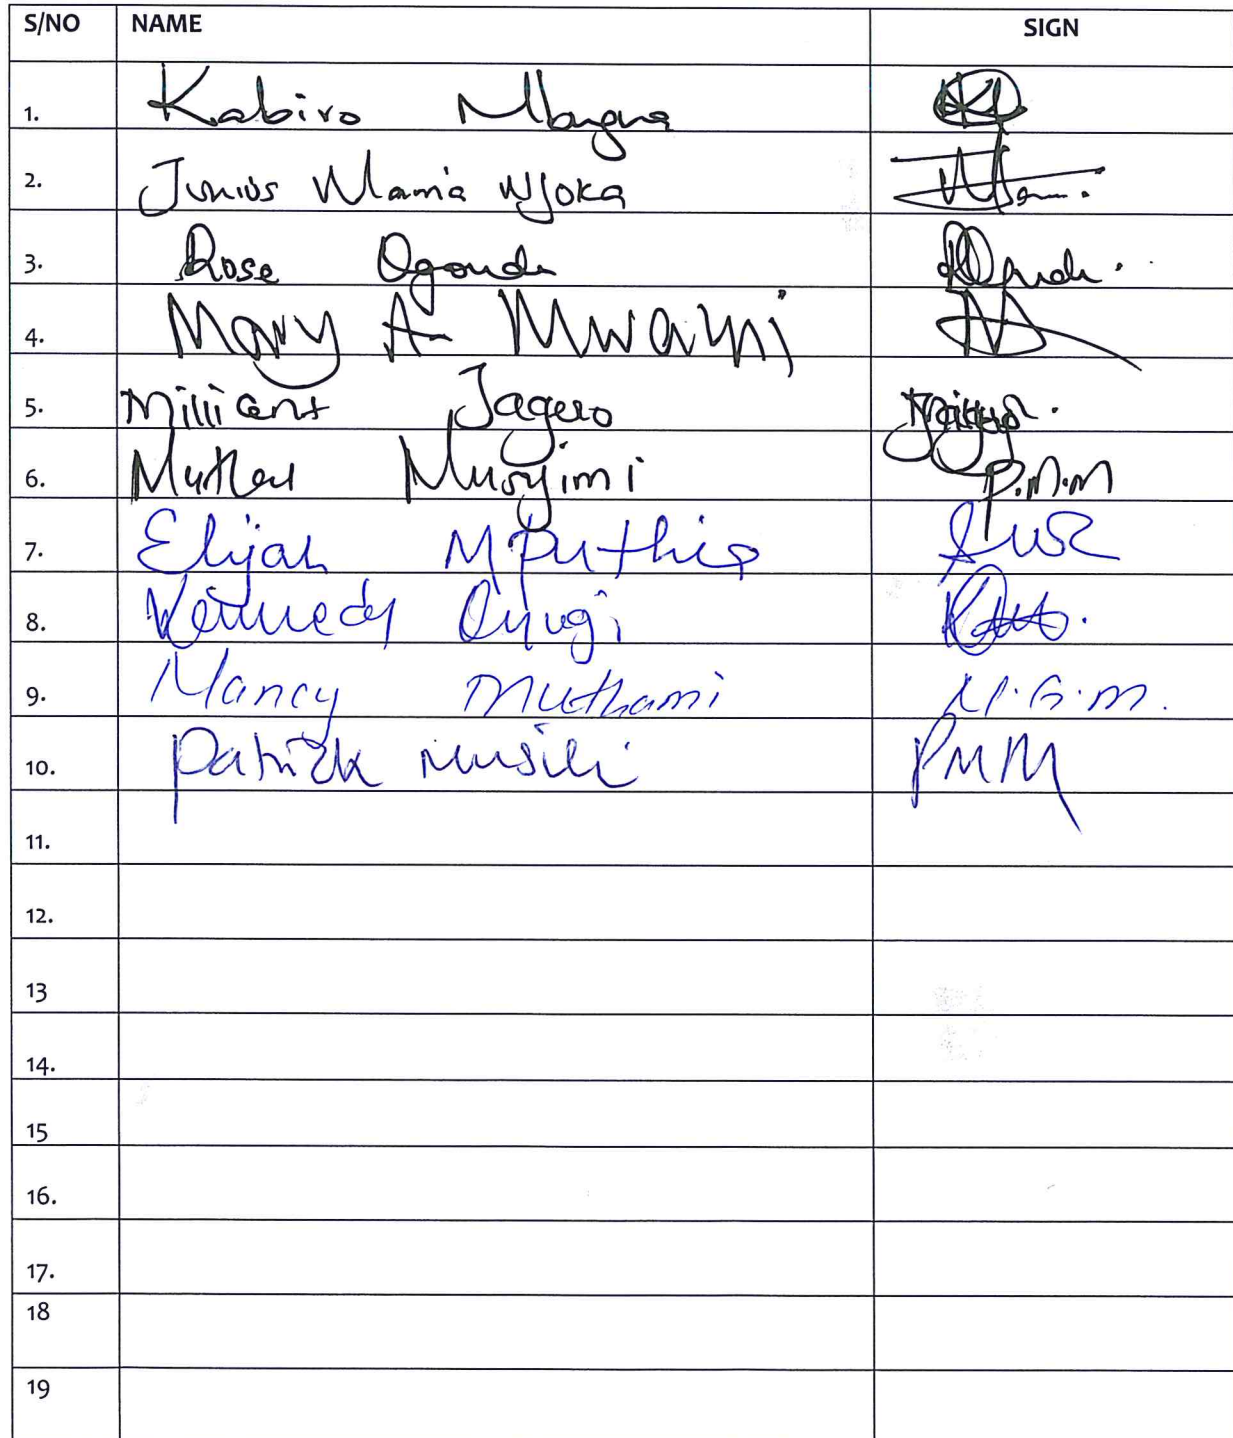 S/NO NAME SIGN
1. Kabiro Mbugua
2. Junius Mama Njoka
3. Rose Ogonda
4. Mary A- Mwami
5. Millicent Jagero
6. Mutter Musyimi P.M.M
7. Elijah Mputhia
8. Kennedy Onyugi
9. Mancy Muthami M.G.M.
10. Patrick Musili PMM
11.
12.
13
14.
15
16.
17.
18
19